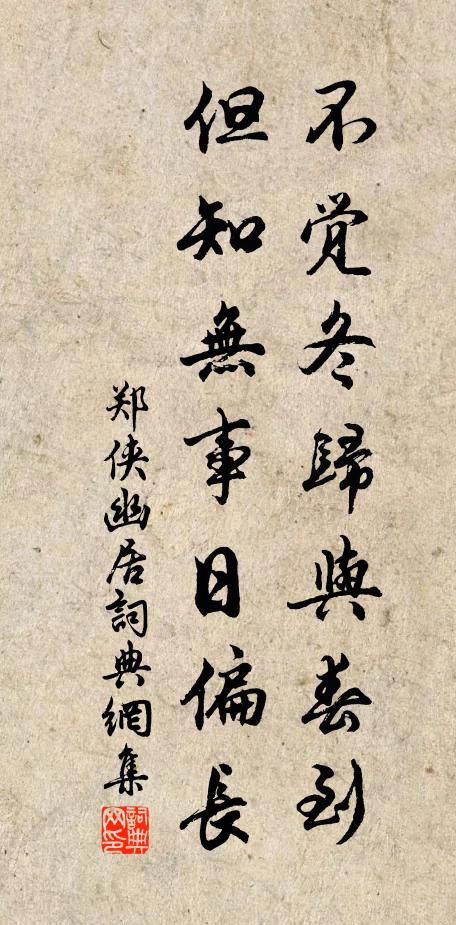 不觉冬歸與春到
但知無事日偏長
郑侠幽居詞典網集
詞典网印